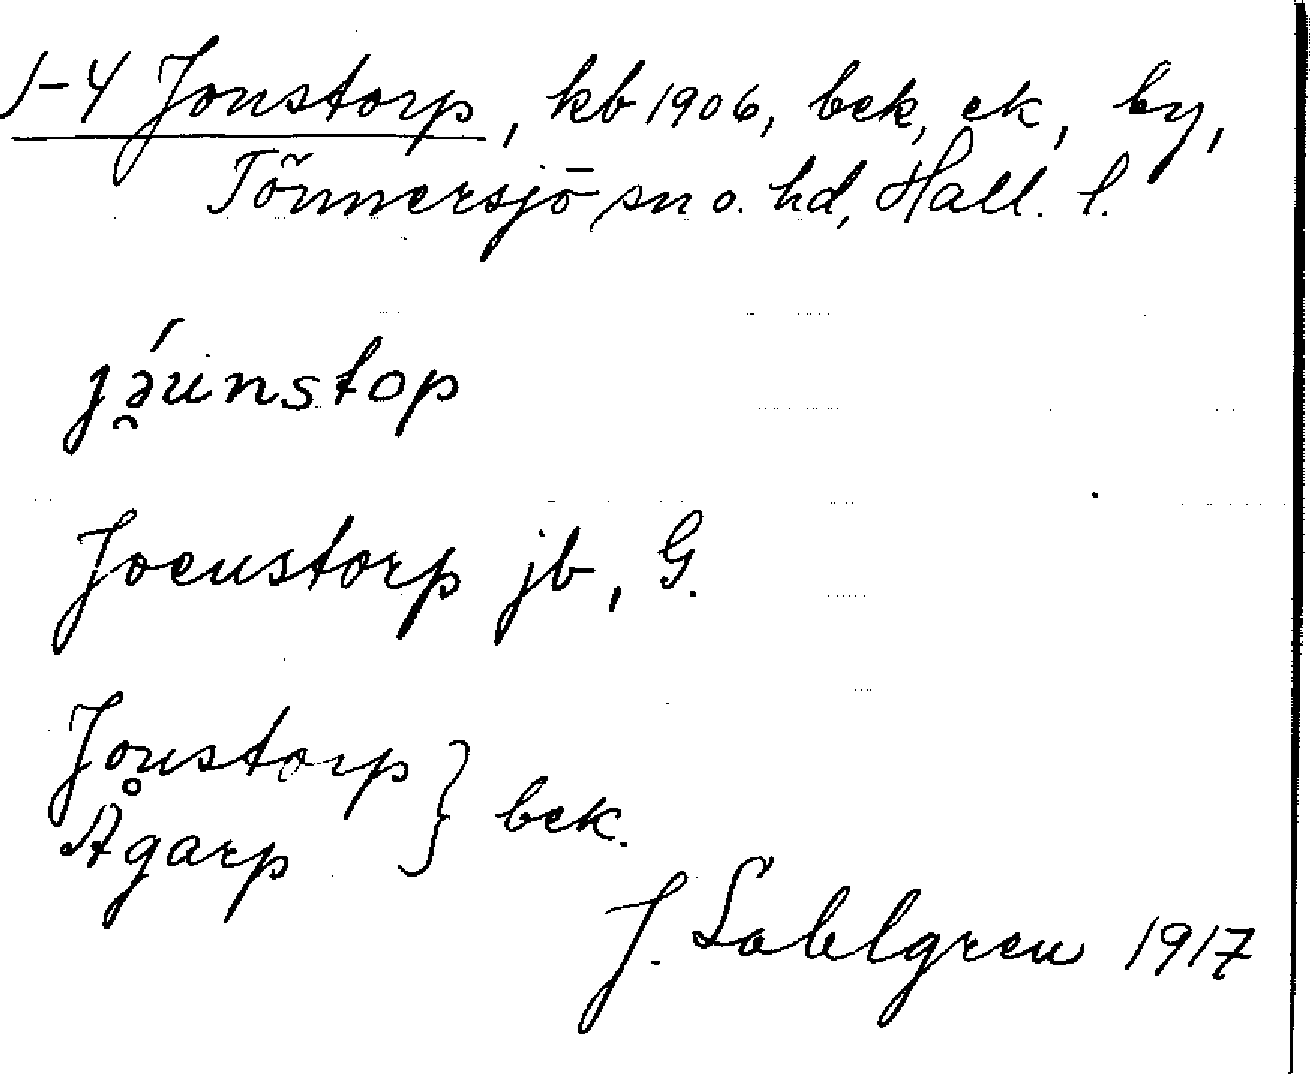 1-4 Jonstorp, kb 1906, bek, ek, by,
Tönnersjö sn o. hd, Hall. l.
jə̯́unstop
Joenstorp jb, G.
Jonstorp
Ågarp } bek.
J. Sahlgren 1917